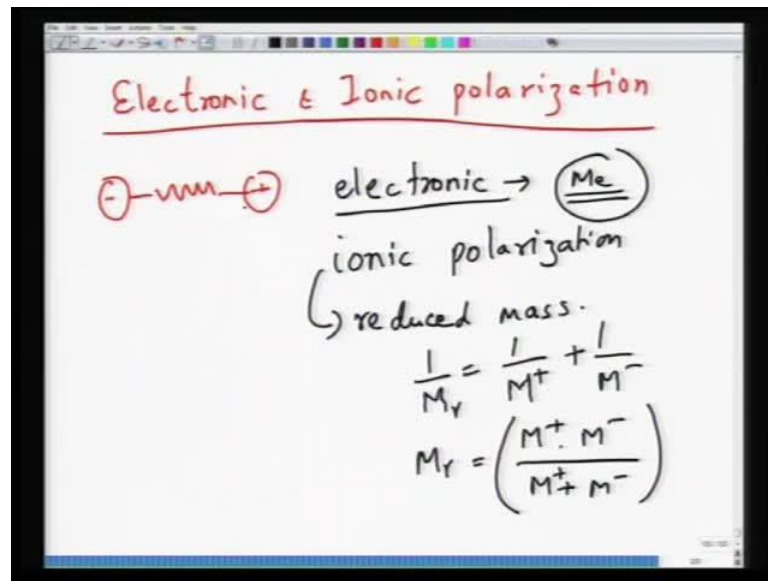 Electronic & Ionic polarization
- + electronic → Me
ionic polarization
↳ reduced mass.
1/Mr = 1/M⁺ + 1/M⁻
Mr = (M⁺. M⁻ / M⁺+ M⁻)